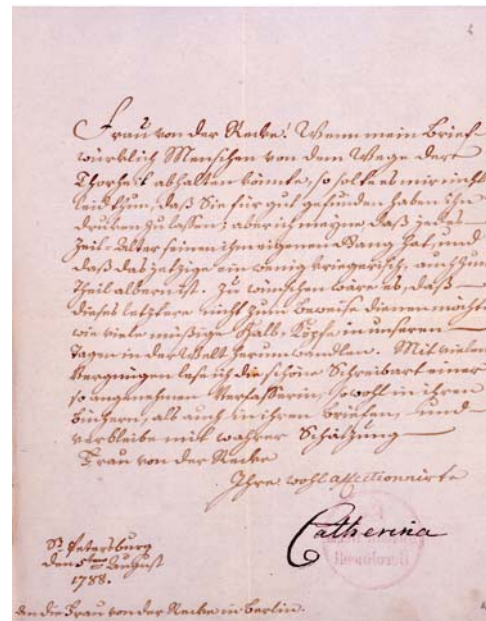 Frau von der Recke! Wenn mein Brief
würklich Menschen von dem Wege der
Thorheit abhalten könnte, so sollte es mir nicht
leid thun, daß Sie für gut gefunden haben ihn
drucken zu lassen; aber ich meyne, daß jedes
Zeit-Alter seinen ihm eigenen Gang hat, und
daß das jetzige ein wenig kriegerisch, auch zum
Theil albern ist. Zu wünschen wäre es, daß
dieses letztere nicht zum Beweise dienen möchte
wie viele müßige Halb-Köpfe in unseren
Tagen in der Welt herumwandlen. Mit vielen
Vergnügen lese ich die schöne Schreibart einer
so angenehmen Verfasserin, sowohl in ihren
Büchern, als auch in ihren Briefen, und
verbleibe mit wahrer Schätzung
Frau von der Recke
Ihre wohl affectionnirte
Catherina
St. Petersburg
den 5ten August
1788.
An die Frau von der Recke in Berlin.